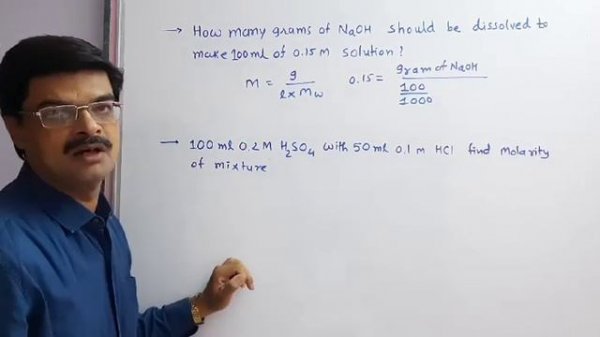 → How many grams of NaOH should be dissolved to
make 100ml of 0.15 M solution?
M = g / l x Mw 0.15 = gram of NaOH / 100 / 1000
→ 100 ml 0.2 M H2SO4 with 50 ml 0.1 m HCl find molarity
of mixture